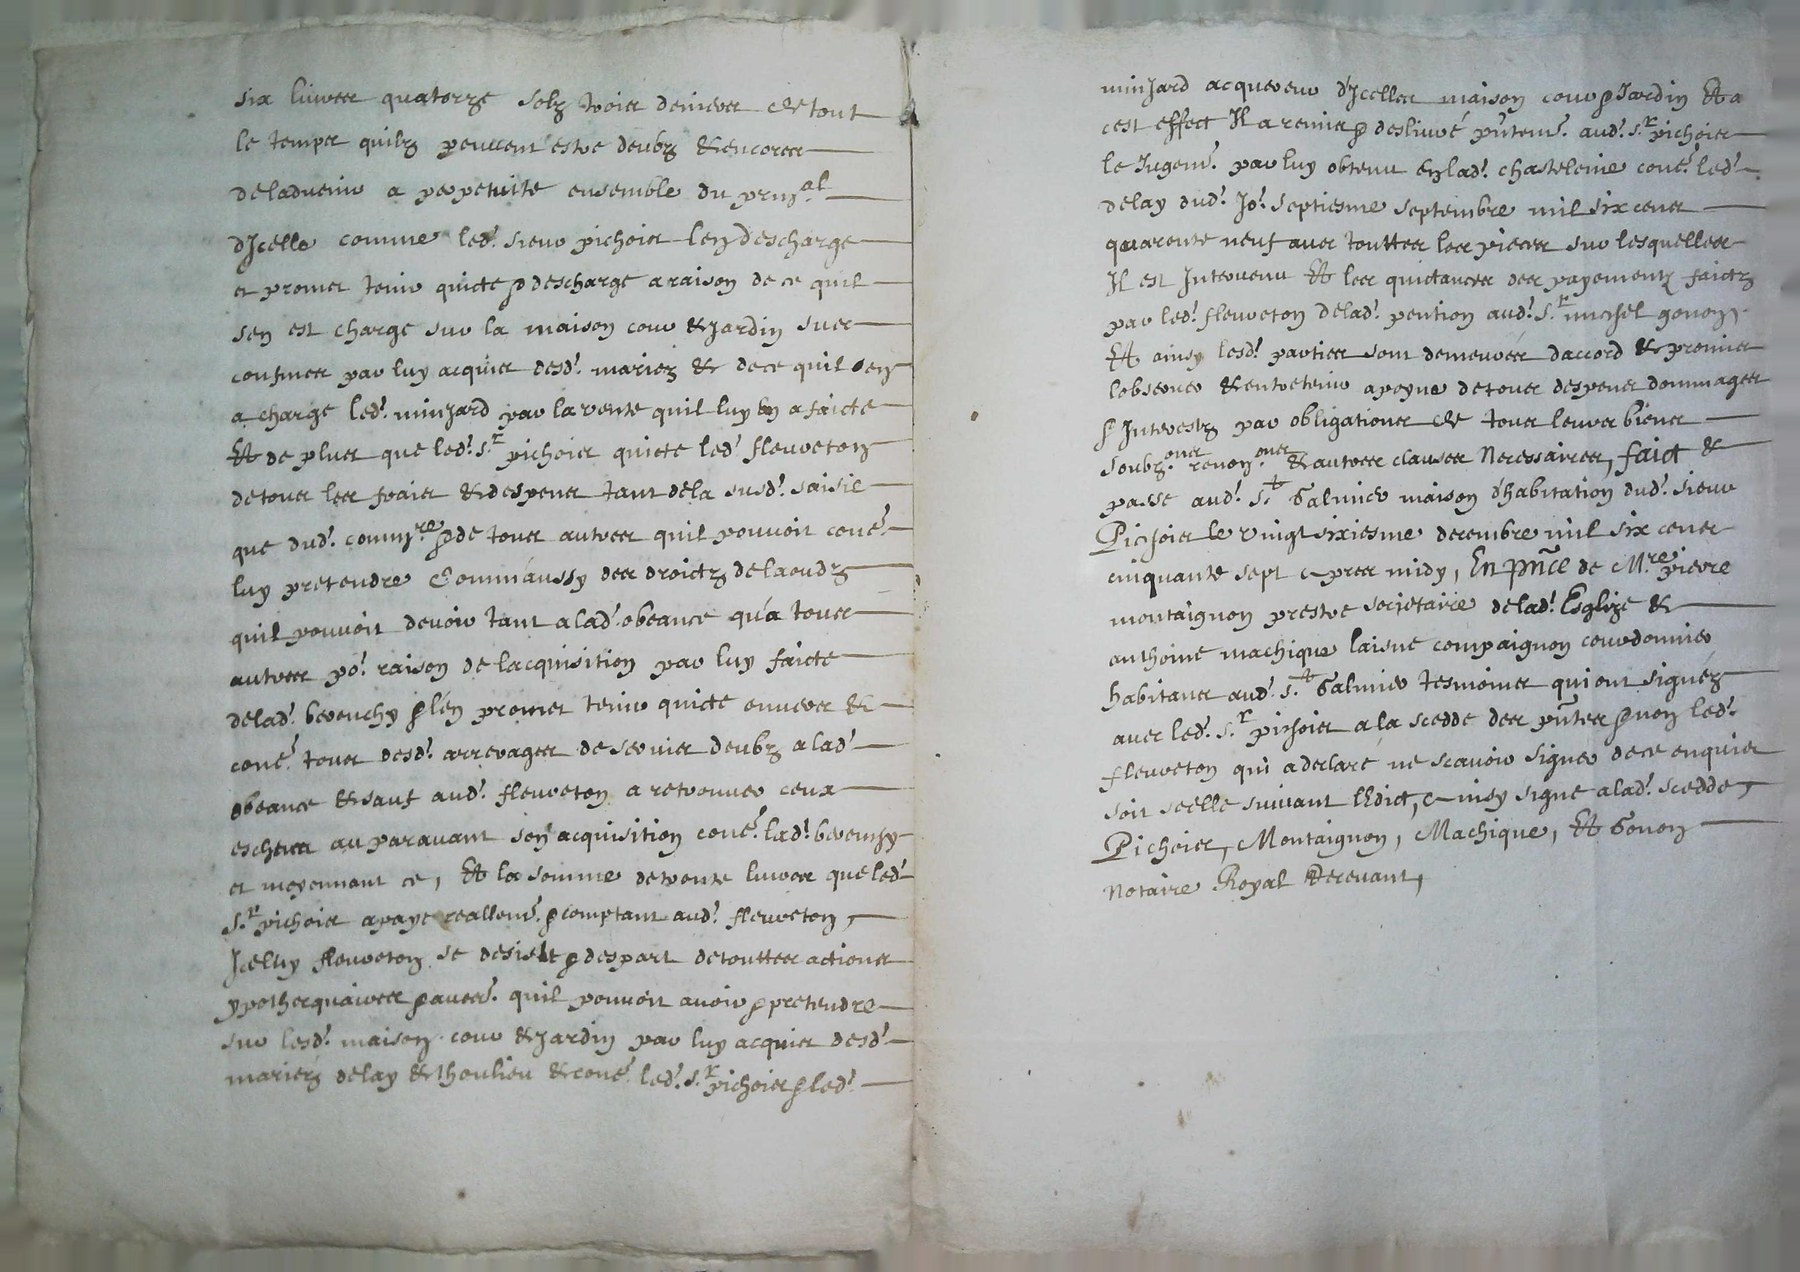 six livres quatorze solz trois deniers de tout
le temps quilz peuvent estre deubz & encores
deladvenir a perpetuite ensemble du prin.al
d'Icelle comme led. sieur pichois len descharge
et promet tenir quicte & descharge a raison de ce quil
sen est charge sur la maison cour & Jardin sues
confines par luy acquise desd. mariez & de ce quil en
a charge led. minjard par la vente quil luy en a faicte
Et de plus que led. s.r pichois quicte led. fleureton
de tous les frais & despens tant de la susd. saisie
que dud. comm.re & de tous autres quil pouvoit cone.
luy pretendre Comm'aussy des droictz de laoudz
quil pouvoit devoir tant a lad. obeance qu'a tous
autres po. raison de lacquisition par luy faicte
delad. berouchy & l'en promet tenir quicte envers &
cone. tous desd. arrerages de servis deubz a lad.
obeance & sauf aud. fleureton a retrouver ceux
escheus au paravant son acquisition cone. lad. berouchy
et moyennant ce, Et la somme de trente livres que led.
s.r pichois a paye reallem. & comptant aud. fleureton,
Iceluy fleureton se desiste & despart de touttes actions
ypothecquaires & autres. quil pouvoit avoir & pretendre
sur lesd. maison cour & Jardin par luy acquis desd.
mariez delay & thoulieu & cone. led. s.r pichois & led.
minjard acquereur d'Icelles maison cour & Jardin Et a
cest effect Il a remis & deslivré pñtem. aud. s.r pichois
le Jugem. par luy obtenu en lad. chastelenie cone. led.
delay dud. Jo. septiesme septembre mil six cens
quarente neuf avec touttes les pieces sur lesquelles
Il est Intervenu Et les quictances des payementz faictz
par led. fleureton delad. pention aud. s.r michel gonon,
Et ainsy lesd. parties sont demeurées daccord & promis
lobserver & entretenir a peyne de tous despens dommages
& Interestz par obligations de tous leurs biens
soubz.ons renon.ons & autres clauses Necessaires, faict &
passe aud. s.t Galmier maison d'habitation dud. sieur
Pichois le vingt sixiesme decembre mil six cens
cinquante sept apres midy, En pñce de M.re pierre
montaignon prestre societaire delad. Esglize &
anthoine machique laisne compaignon courdonnier
habitans aud. s.t Galmier tesmoins qui ont signéz
avec led. s.r pichois a la scedde des pñtes & non led.
fleureton qui a declaré ne scavoir signer de ce enquis
soit seelle suivant lEdict, Ainsy signe a lad. scedde,
Pichois, Montaignon, Machique, Et Gonon
Notaire Royal Recevant,